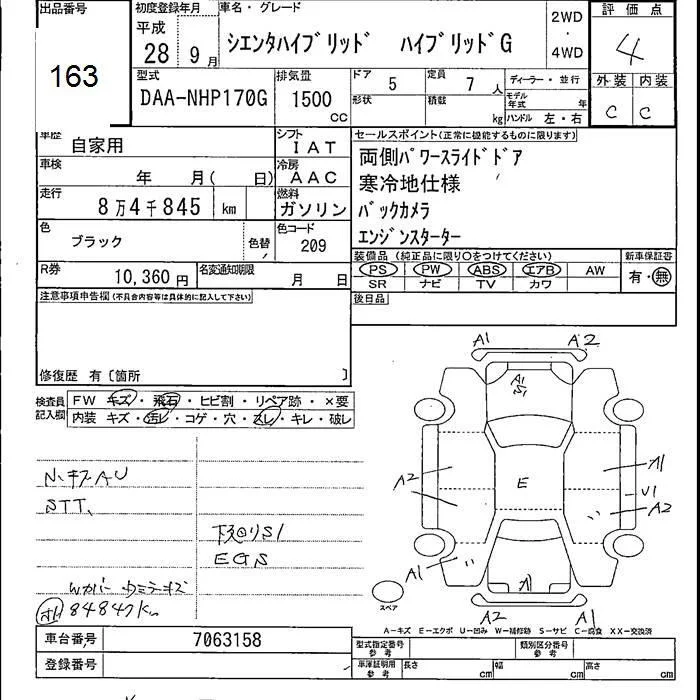 出品番号
163
初度登録年月
平成
28 9月
車名・グレード
シエンタハイブリッド ハイブリッドG
2WD
・
4WD
評価点
4
外装 内装
C C
型式
DAA-NHP170G
排気量
1500
CC
ドア 5
定員 7人
ディーラー・並行
形状
積載 kg
モデル年式 年
ハンドル 左・右
車歴 自家用
シフト
IAT
車検 年 月( 日)
冷房
AAC
走行
8万4千845 km
燃料
ガソリン
色
ブラック
色替
色コード
209
R券
10,360円
名変通知期限
月 日
セールスポイント(正常に機能するものに限ります)
両側パワースライドドア
寒冷地仕様
バックカメラ
エンジンスターター
装備品(純正品に限り○をつけてください)
PS PW ABS エアB AW
SR ナビ TV カワ
新車保証書
有・無
後日品
注意事項申告欄(不具合内容等は具体的に記入して下さい)
修復歴 有〔箇所 〕
検査員記入欄
FW キズ・飛石・ヒビ割・リペア跡・×要
内装 キズ・汚レ・コゲ・穴・スレ・キレ・破レ
STT、
下廻りS1
EGS
84847Km
A1 A2
A1
S1
A2
A1
E
U1
A2
A1
A1
A2 A1
スペア
A-キズ E-エクボ U-凹み W-補修跡 S-サビ C-腐食 XX-交換済
車台番号 7063158
登録番号
型式指定番号
参考
類別区分番号
参考
車庫証明用
参考
長さ cm
幅 cm
高さ cm